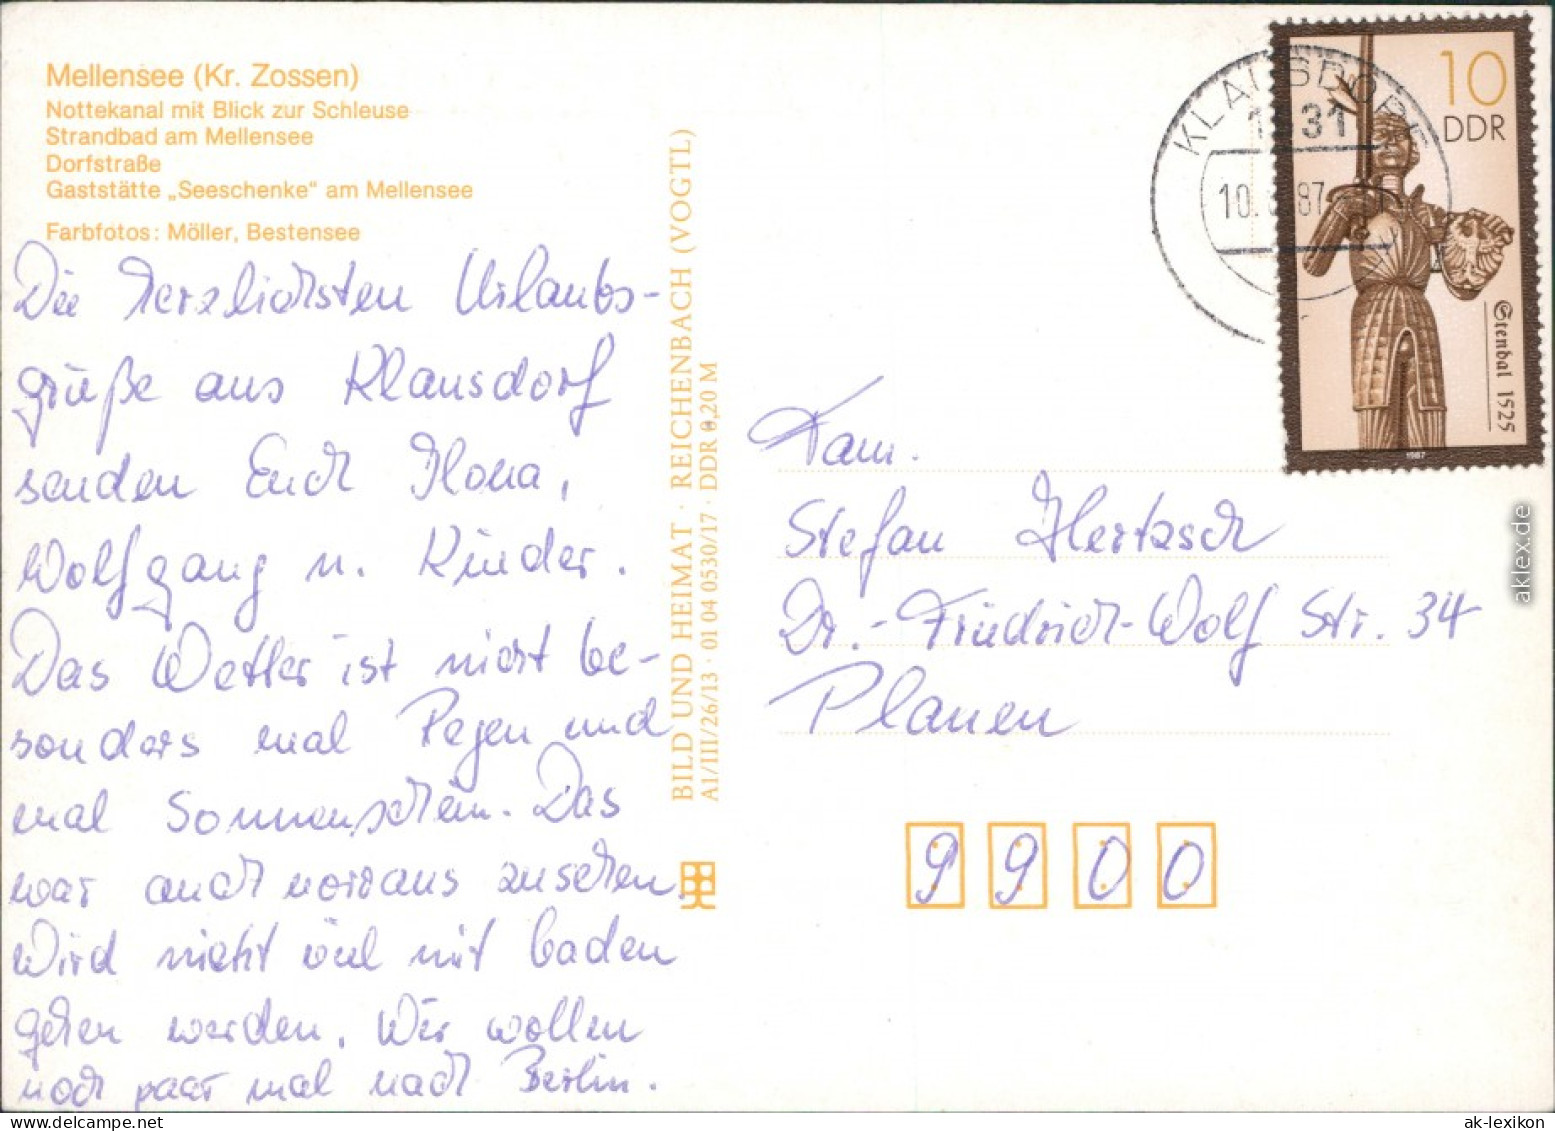 Mellensee (Kr. Zossen)
Nottekanal mit Blick zur Schleuse
Strandbad am Mellensee
Dorfstraße
Gaststätte „Seeschenke“ am Mellensee
Farbfotos: Möller, Bestensee
Die herzlichsten Urlaubs-
grüße aus Klausdorf
senden Euch Ilona,
Wolfgang u. Kinder.
Das Wetter ist nicht be-
sonders mal Regen und
mal Sonnenschein. Das
war auch vorraus zusehen.
Wird nicht viel mit baden
gehen werden. Wir wollen
noch paar mal nach Berlin.
BILD UND HEIMAT · REICHENBACH (VOGTL)
A1/III/26/13 · 01 04 0530/17 · DDR 0,20 M
KLAUSDORF
1631
10. 87
10
DDR
Stendal 1525
1987
Fam.
Stefan Hertzsch
Dr.-Friedrich-Wolf Str. 34
Plauen
9900
aklex.de
ak-lexikon